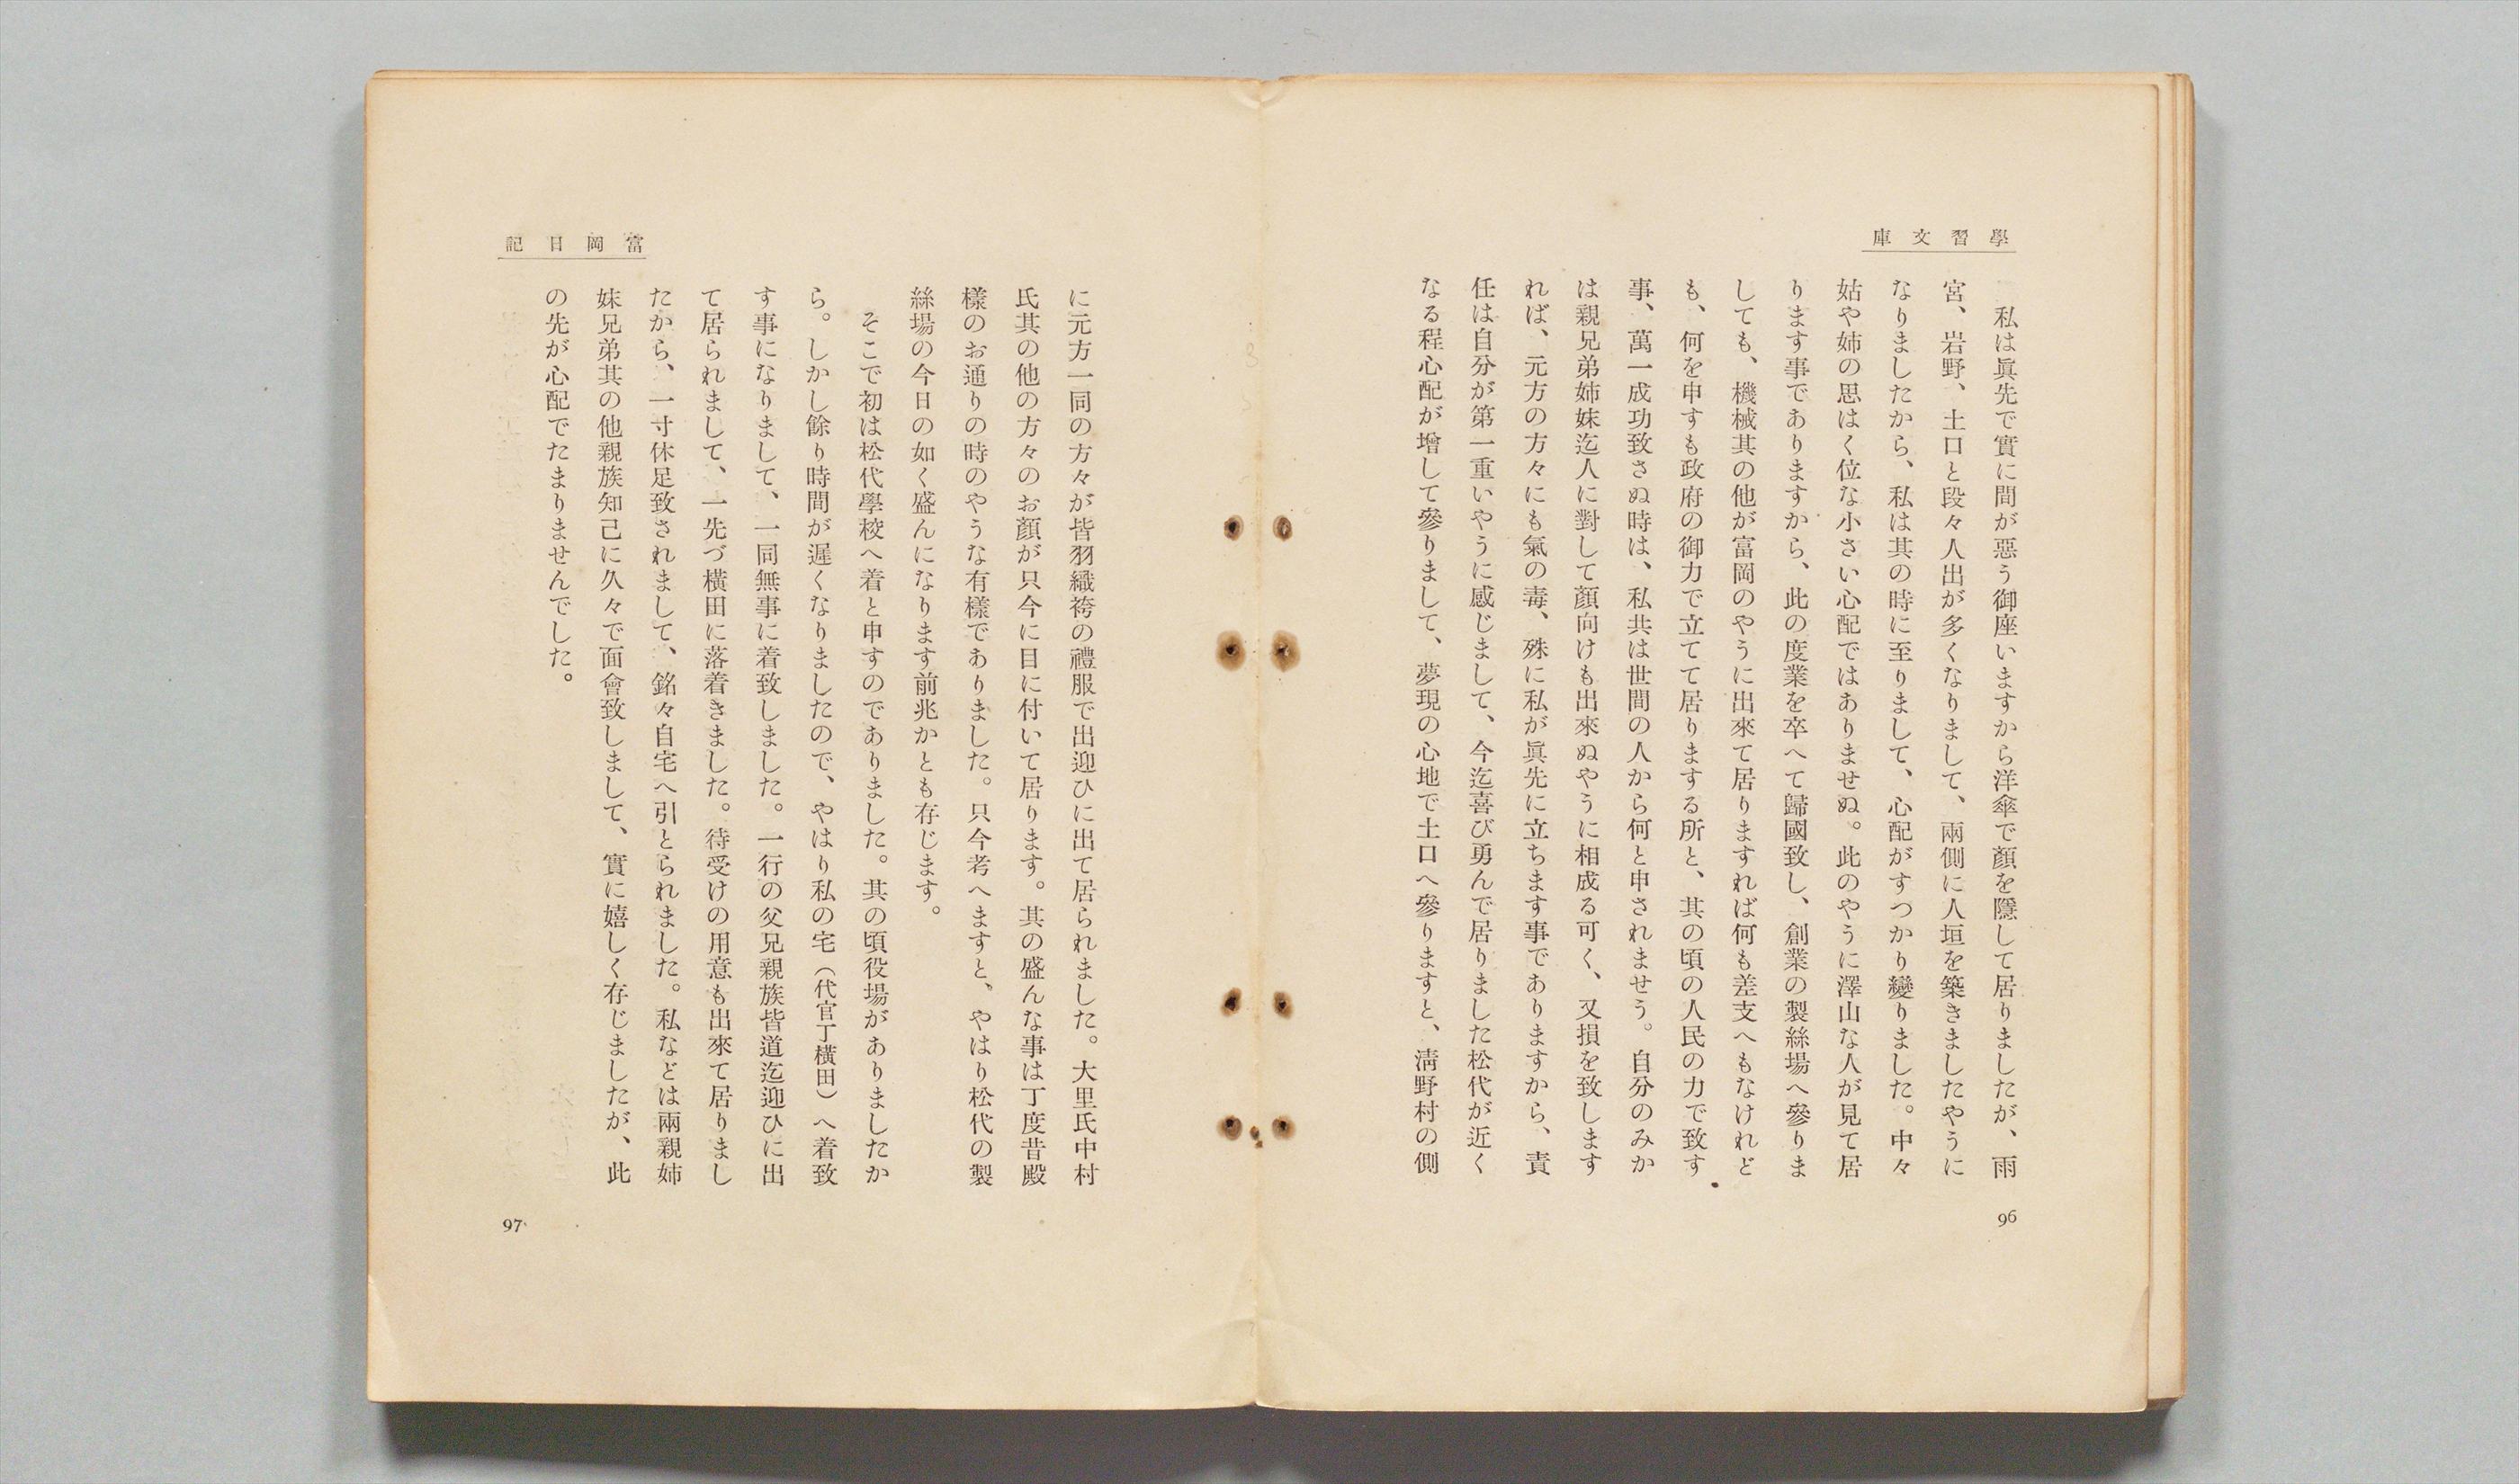 學習文庫
私は眞先で實に間が惡う御座いますから洋傘で顏を隱して居りましたが、雨
宮、岩野、土口と段々人出が多くなりまして、兩側に人垣を築きましたやうに
なりましたから、私は其の時に至りまして、心配がすつかり變りました。中々
姑や姉の思はく位な小さい心配ではありませぬ。此のやうに澤山な人が見て居
ります事でありますから、此の度業を卒へて歸國致し、創業の製絲場へ參りま
しても、機械其の他が富岡のやうに出來て居りますれば何も差支へもなけれど
も、何を申すも政府の御力で立てて居りまする所と、其の頃の人民の力で致す
事、萬一成功致さぬ時は、私共は世間の人から何と申されませう。自分のみか
は親兄弟姉妹迄人に對して顏向けも出來ぬやうに相成る可く、又損を致します
れば、元方の方々にも氣の毒、殊に私が眞先に立ちます事でありますから、責
任は自分が第一重いやうに感じまして、今迄喜び勇んで居りました松代が近く
なる程心配が增して參りまして、夢現の心地で土口へ參りますと、淸野村の側
96
富岡日記
に元方一同の方々が皆羽織袴の禮服で出迎ひに出て居られました。大里氏中村
氏其の他の方々のお顏が只今に目に付いて居ります。其の盛んな事は丁度昔殿
樣のお通りの時のやうな有樣でありました。只今考へますと、やはり松代の製
絲場の今日の如く盛んになります前兆かとも存じます。
そこで初は松代學校へ着と申すのでありました。其の頃役場がありましたか
ら。しかし餘り時間が遲くなりましたので、やはり私の宅（代官丁橫田）へ着致
す事になりまして、一同無事に着致しました。一行の父兄親族皆道迄迎ひに出
て居られまして、一先づ橫田に落着きました。待受けの用意も出來て居りまし
たから、一寸休足致されまして、銘々自宅へ引とられました。私などは兩親姉
妹兄弟其の他親族知己に久々で面會致しまして、實に嬉しく存じましたが、此
の先が心配でたまりませんでした。
97